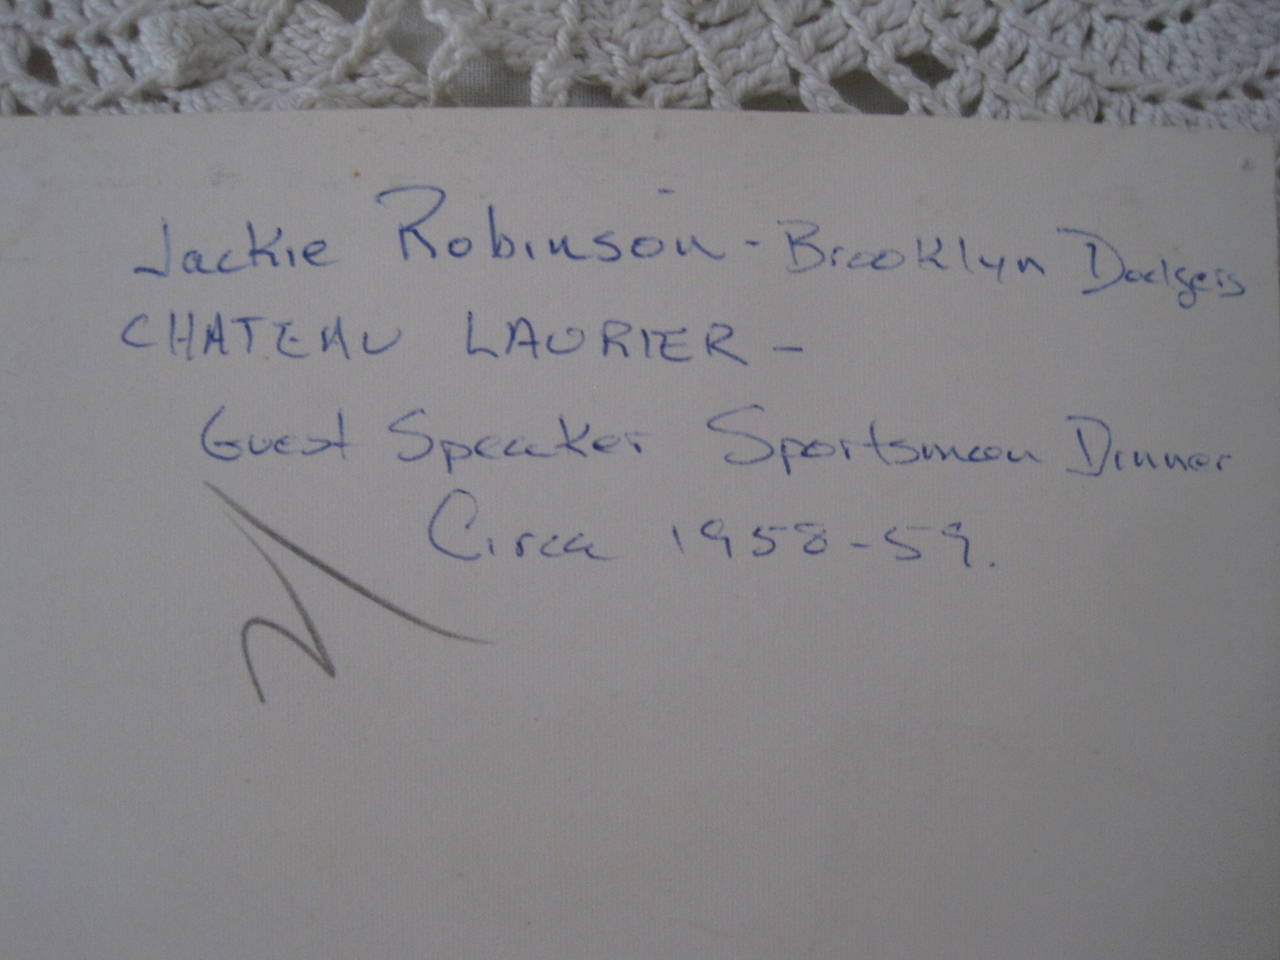 Jackie Robinson - Brooklyn Dodgers
CHATEAU LAURIER -
Guest Speaker Sportsman Dinner
Circa 1958-59.